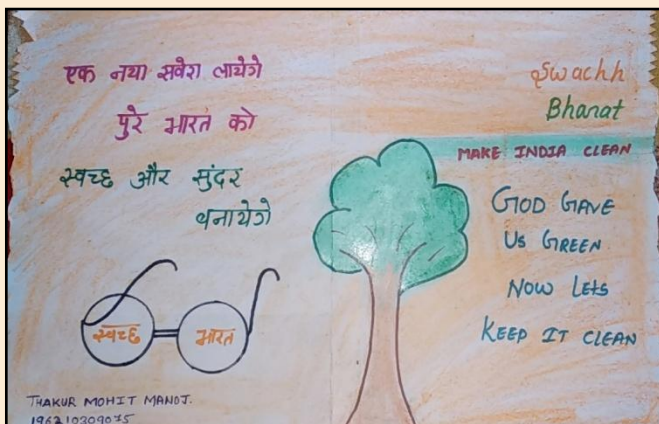 एक नया सवेरा लायेगे
पुरे भारत को
स्वच्छ और सुंदर
बनायेगे
स्वच्छ भारत
THAKUR MOHIT MANOJ.
196210309075
Swachh
Bharat
MAKE INDIA CLEAN
GOD GAVE
US GREEN
NOW LETS
KEEP IT CLEAN